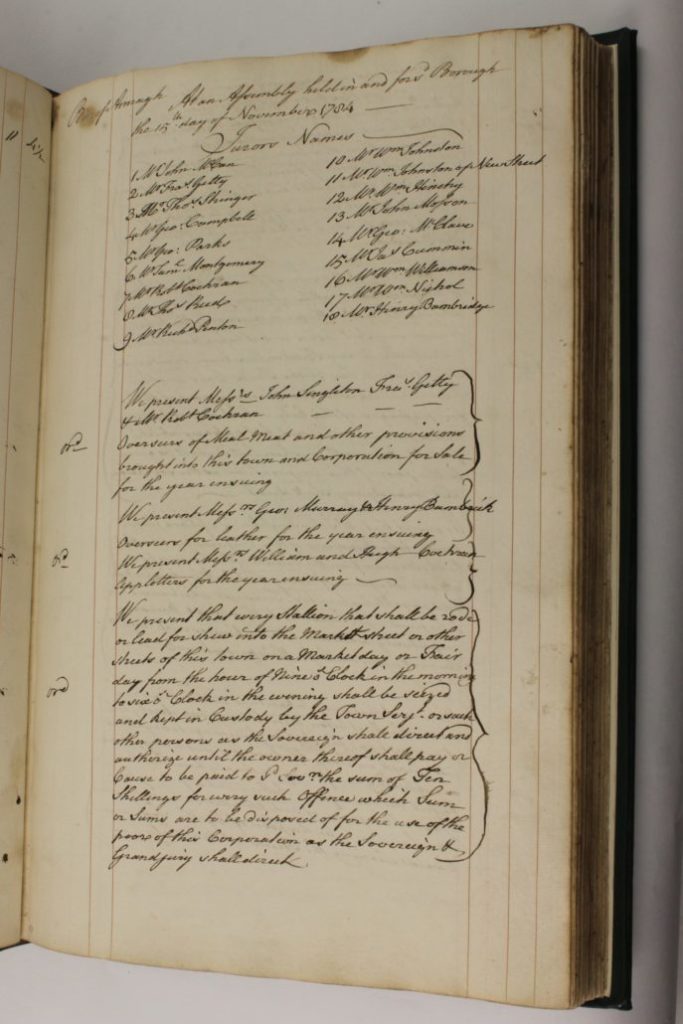 Bor. of Armagh At an Assembly held in and for sd Borough
the 15th day of November 1784
Jurors Names
1 Mr John McCan
2 Mr Fras Getty
3 Mr Thos Stringer
4 Mr Geo: Campbell
5 Mr Geo: Parks
6 Mr Saml Montgomery
7 Mr Robt Cochran
8 Mr Thos Reed
9 Mr Richd Penton
10 Mr Wm Johnston
11 Mr Wm Johnston of New Street
12 Mr Wm
13 Mr John
14 Mr Geo: McClave
15 Mr Jas Cummin
16 Mr Wm Williamson
17 Mr Wm Nichol
18 Mr Henry Bambridge
We present Messrs John Singleton Fras Getty
& Mr Robt Cochran
Overseers of Meal Meat and other provisions
ord
brought into this town and Corporation for Sale
for the year ensuing
We present Messrs Geo: Murray & Henry
Overseers for leather for the year ensuing
ord
We present Messrs William and Hugh Cochran
Applotters for the year ensuing
We present that every Stallion that shall be rode
or lead for shew into the Markett street or other
streets of this town on a Market day or Fair
day from the hour of Nine o Clock in the morning
ord
to six o Clock in the evening shall be seized
and kept in Custody by the Town Serjt or such
other persons as the Sovereign shall direct and
authorize until the owner thereof shall pay or
Cause to be paid to sd Sovn the sum of Ten
Shillings for every such Offence which Sum
or Sums are to be disposed of for the use of the
poor of this Corporation as the Sovereign &
Grand jury shall direct.